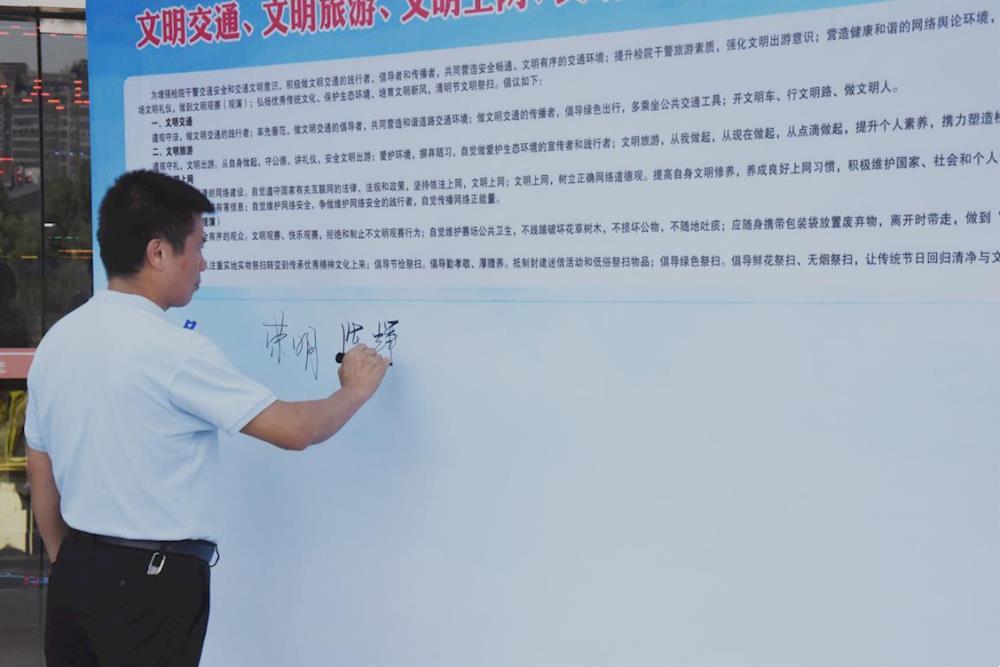 文明交通、文明旅游、文明上网、
为增强检院干警交通安全和交通文明意识，积极做文明交通的践行者、倡导者和传播者，共同营造安全畅通、文明有序的交通环境；提升检院干警旅游素质，强化文明出游意识；营造健康和谐的网络舆论环境，
场文明礼仪，做到文明观赛（观演）；弘扬优秀传统文化、保护生态环境、培育文明新风，清明节文明祭扫。倡议如下：
一、文明交通
遵规守法，做文明交通的践行者；率先垂范，做文明交通的倡导者，共同营造和谐道路交通环境；做文明交通的传播者，倡导绿色出行，多乘坐公共交通工具；开文明车、行文明路、做文明人。
二、文明旅游
遵规守礼，文明出游。从自身做起，守公德、讲礼仪，安全文明出游；爱护环境，摒弃陋习，自觉做爱护生态环境的宣传者和践行者；文明旅游，从我做起，从现在做起，从点滴做起，提升个人素养，携力塑造
上网
明网络建设。自觉遵守国家有关互联网的法律、法规和政策，坚持依法上网，文明上网；文明上网，树立正确网络道德观。提高自身文明修养，养成良好上网习惯，积极维护国家、社会和个人
有害信息；自觉维护网络安全，争做维护网络安全的践行者，自觉传播网络正能量。
演）
全有序的观众。文明观赛、快乐观赛，拒绝和制止不文明观赛行为；自觉维护赛场公共卫生，不践踏破坏花草树木，不损坏公物，不随地吐痰；应随身携带包装袋放置废弃物，离开时带走，做到
注重实地实物祭扫转到传承优秀精神文化上来；倡导节俭祭扫。倡导勤孝敬、厚赡养。抵制封建迷信活动和低俗祭扫物品；倡导绿色祭扫。倡导鲜花祭扫、无烟祭扫，让传统节日回归清净与文
名
荣明